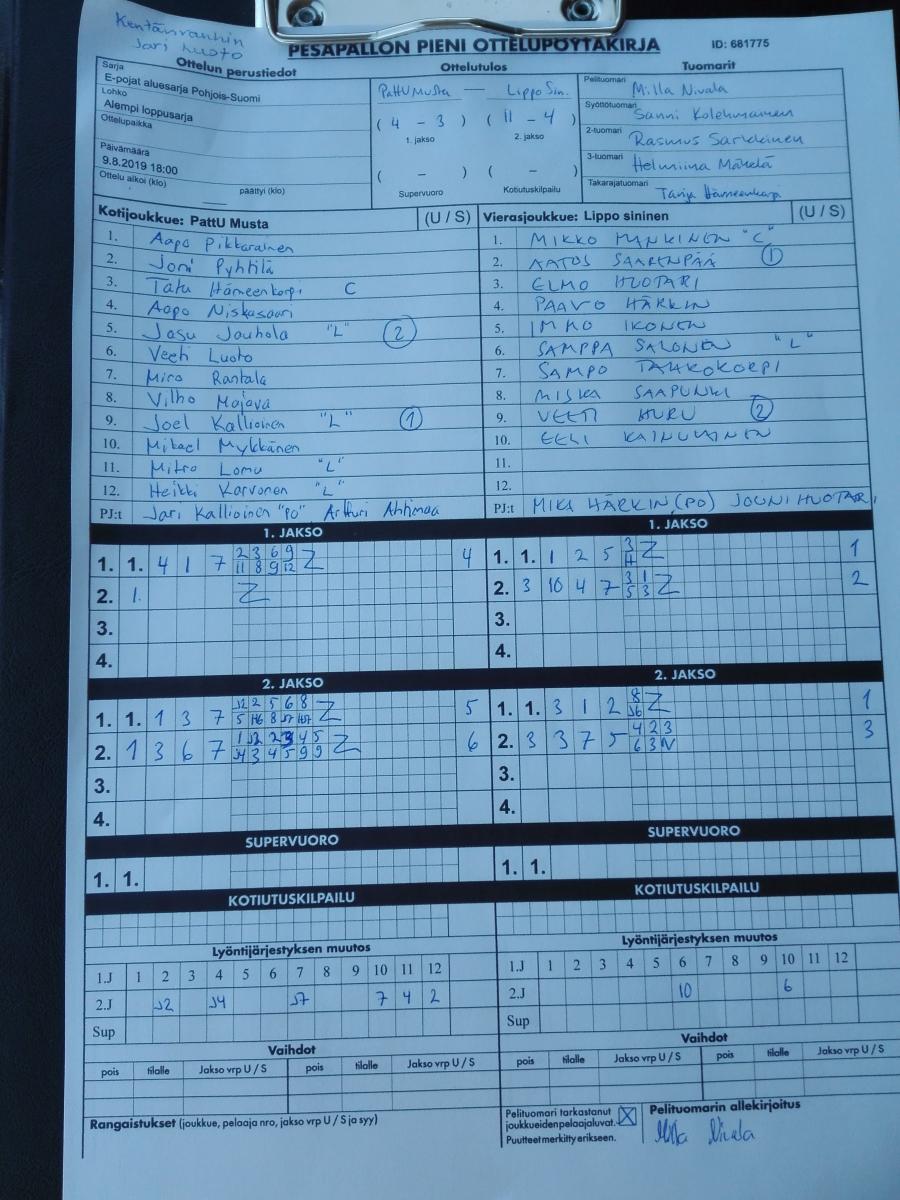 Kentänvanhin
Jari Luoto
PESÄPALLON PIENI OTTELUPÖYTÄKIRJA ID: 681775
Ottelun perustiedot Ottelutulos Tuomarit
Sarja
E-pojat aluesarja Pohjois-Suomi
Lohko
Alempi loppusarja
Ottelupaikka
Päivämäärä
9.8.2019 18:00
Ottelu alkoi (klo) päättyi (klo)
PattU Musta — Lippo Sin.
( 4 - 3 ) ( 11 - 4 )
1. jakso 2. jakso
( - ) ( - )
Supervuoro Kotiutuskilpailu
Pelituomari Milla Nivala
Syöttötuomari Sanni Kolehmainen
2-tuomari Rasmus Sarkkinen
3-tuomari Helmiina Mäkelä
Takarajatuomari Tanja Hämeenkorpi
Kotijoukkue: PattU Musta (U / S)
1. Aapo Pikkarainen
2. Joni Pyhtilä
3. Tatu Hämeenkorpi C
4. Aapo Niskasaari
5. Jasu Jouhola "L" 2
6. Veeti Luoto
7. Miro Rantala
8. Vilho Majava
9. Joel Kallioinen "L" 1
10. Mikael Mykkänen
11. Mitro Lomu "L"
12. Heikki Karvonen "L"
PJ:t Jari Kallioinen "PO" Artturi Ahimaa
Vierasjoukkue: Lippo sininen (U / S)
1. MIKKO MANKINEN "C"
2. AATOS SAARENPÄÄ 1
3. ELMO HUOTARI
4. PAAVO HÄRKIN
5. IMMO IKONEN
6. SAMPPA SALONEN "L"
7. SAMPO TAKKOKORPI
8. MISKA SAAPUNKI
9. VEETI HURU 2
10. EELI KAINULAINEN
11.
12.
PJ:t MIKA HÄRKIN (PO) JOUNI HUOTARI
1. JAKSO
1. 1. 4 1 7 2 3 6 9 Z 4
11 8 9 12
2. 1. Z
3.
4.
1. JAKSO
1. 1. 1 2 5 3 Z 1
4
2. 3 10 4 7 3 1 Z 2
5 3
3.
4.
2. JAKSO
1. 1. 1 3 7 J2 2 5 6 8 Z 5
5 J4 6 8 J7
2. 1 3 6 7 1 J2 2 3 4 5 Z 6
J4 3 4 5 9 9
3.
4.
2. JAKSO
1. 1. 3 1 2 8 Z 1
J6
2. 3 3 7 5 4 2 3 3
6 3 N
3.
4.
SUPERVUORO
1. 1.
SUPERVUORO
1. 1.
KOTIUTUSKILPAILU
KOTIUTUSKILPAILU
Lyöntijärjestyksen muutos
1.J 1 2 3 4 5 6 7 8 9 10 11 12
2.J J2 J4 J7 7 4 2
Sup
Lyöntijärjestyksen muutos
1.J 1 2 3 4 5 6 7 8 9 10 11 12
2.J 10 6
Sup
Vaihdot
pois tilalle Jakso vrp U / S pois tilalle Jakso vrp U / S
Vaihdot
pois tilalle Jakso vrp U / S pois tilalle Jakso vrp U / S
Rangaistukset (joukkue, pelaaja nro, jakso vrp U / S ja syy)
Pelituomari tarkastanut
joukkueiden pelaajaluvat. X
Puutteet merkitty erikseen.
Pelituomarin allekirjoitus
Milla Nivala